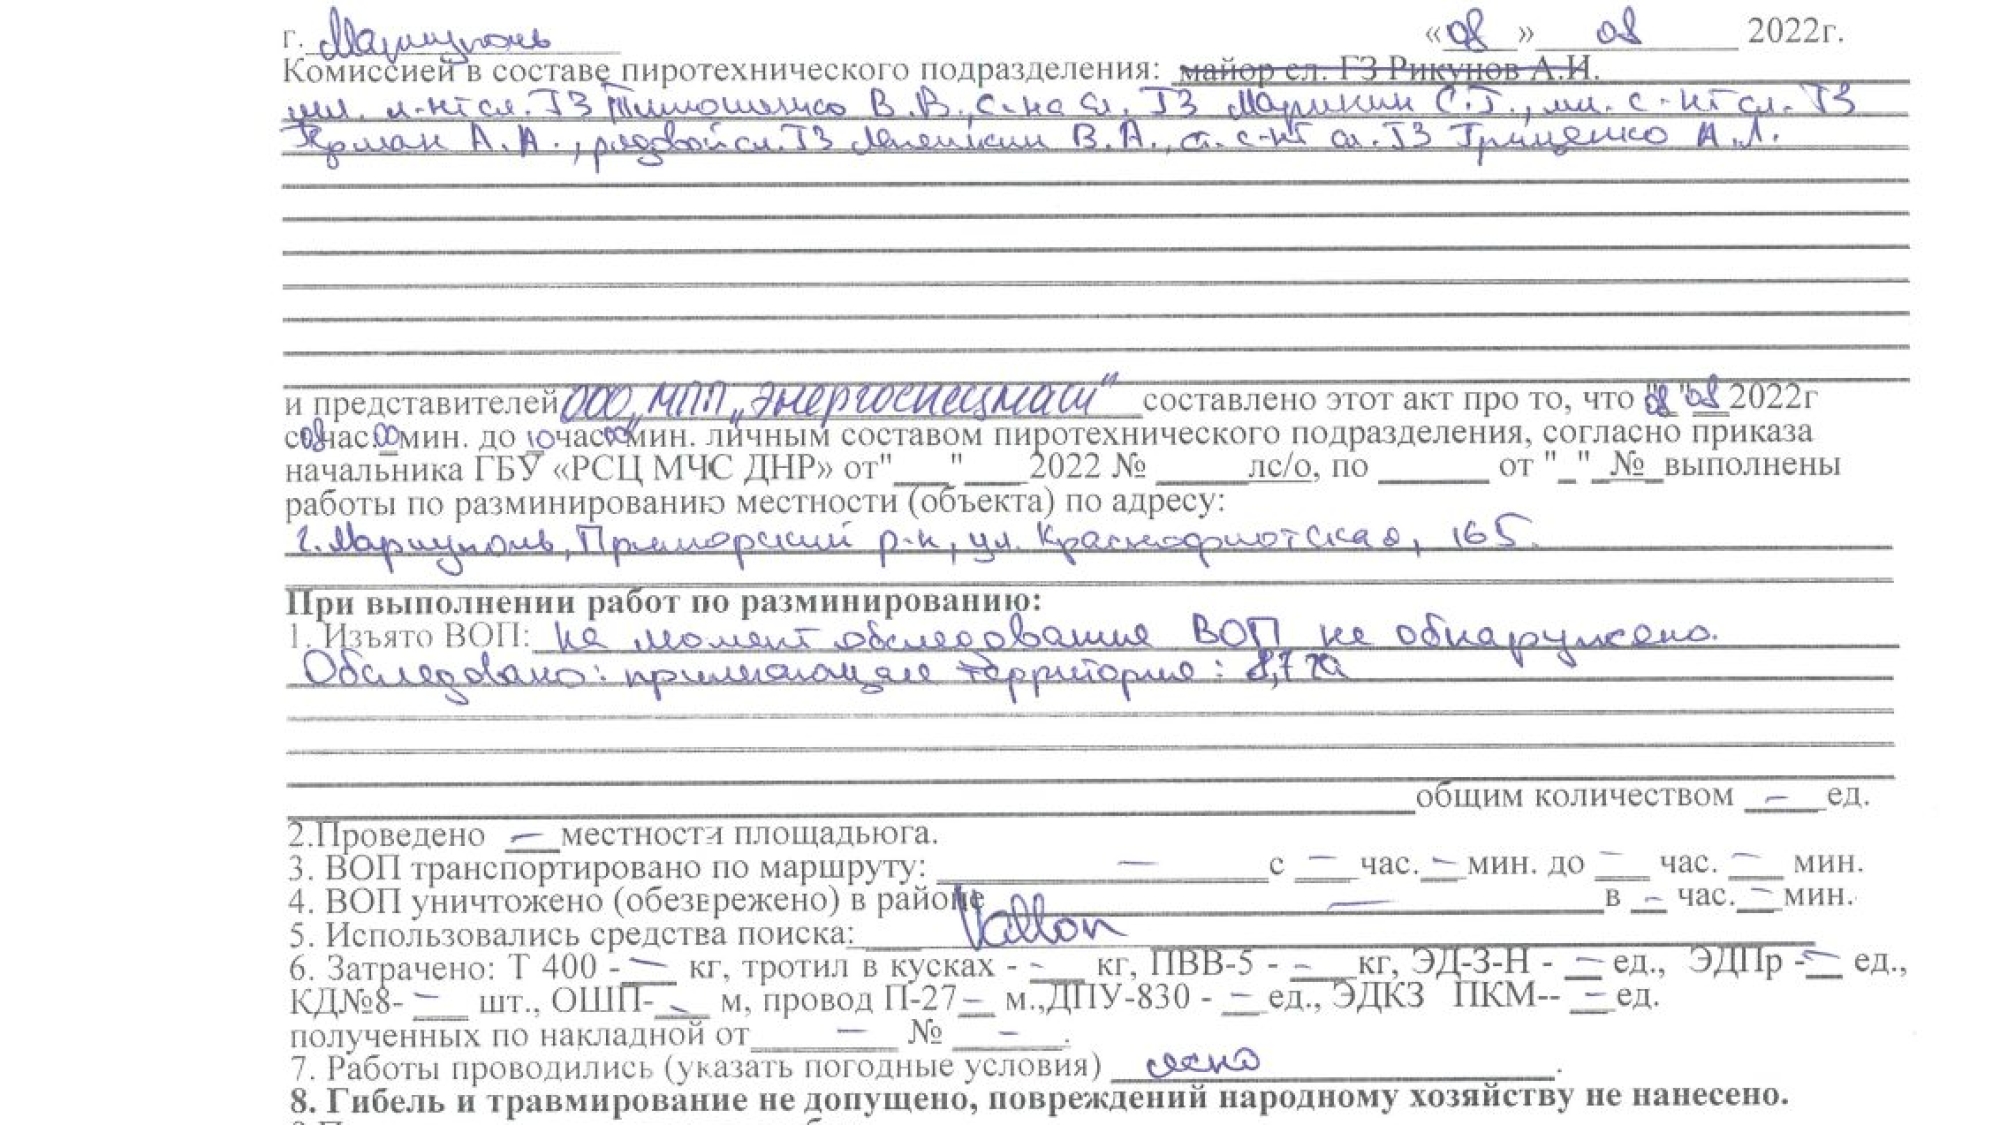 г. Мариуполь «08» 08 2022г.
Комиссией в составе пиротехнического подразделения: майор сл. ГЗ Рикунов А.И.
мл. л-нт сл. ГЗ Тимошенко В.В., с-на сл. ГЗ Маринин С.Г., мл. с-нт сл. ГЗ
А.А., рядовой сл. ГЗ В.А., ст. с-нт сл. ГЗ Гриценко А.Л.
и представителей ООО „МПП „Энергоспецмаш" составлено этот акт про то, что "08" 08 2022г
с 08 час. 00 мин. до 10 час 00 мин. личным составом пиротехнического подразделения, согласно приказа
начальника ГБУ «РСЦ МЧС ДНР» от"___"____2022 № ______лс/о, по _______ от "_" _№_выполнены
работы по разминированию местности (объекта) по адресу:
г. Мариуполь, Приморский р-н, ул. Краснофлотская, 165.
При выполнении работ по разминированию:
1. Изъято ВОП: на момент обследования ВОП не обнаружено.
Обследовано: прилегающая территория: 8,7 га
общим количеством – ед.
2.Проведено – местности площадьюга.
3. ВОП транспортировано по маршруту: – с – час. – мин. до – час. – мин.
4. ВОП уничтожено (обезврежено) в районе – в – час. – мин.
5. Использовались средства поиска: Vallon
6. Затрачено: Т 400 - – кг, тротил в кусках - – кг, ПВВ-5 - – кг, ЭД-З-Н - – ед., ЭДПр - – ед.,
КД№8- – шт., ОШП- – м, провод П-27 – м.,ДПУ-830 - – ед., ЭДКЗ ПКМ-- – ед.
полученных по накладной от – № – .
7. Работы проводились (указать погодные условия) ясно .
8. Гибель и травмирование не допущено, повреждений народному хозяйству не нанесено.